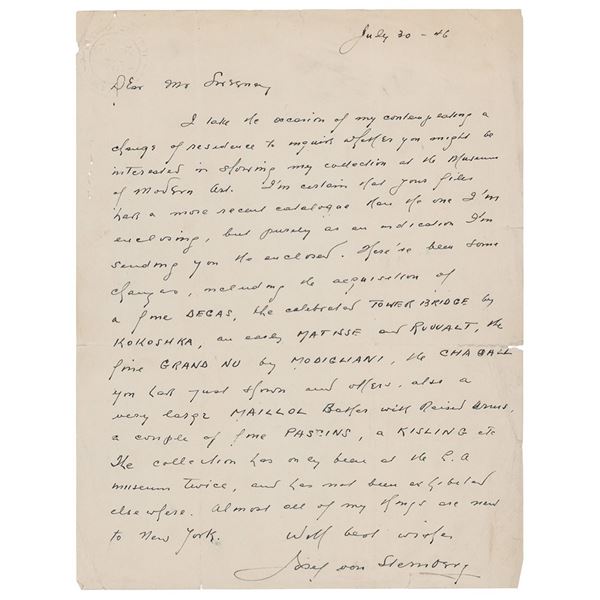 July 30 - 46
Dear Mr Sweeney
I take the occasion of my contemplating a
change of residence to inquire whether you might be
interested in showing my collection at the Museum
of Modern Art. I'm certain that your files
have a more recent catalogue than the one I'm
enclosing, but purely as an indication I'm
sending you the enclosed. There've been some
changes, including the acquisition of
a fine DEGAS, the celebrated TOWER BRIDGE by
KOKOSHKA, an early MATISSE and ROUVALT, the
fine GRAND NU by MODIGLIANI, the CHAGALL
you have just shown and others, also a
very large MAILLOL Bather with Raised Arms,
a couple of fine PASCINS, a KISLING etc
The collection has only been at the L.A
museum twice, and has not been exhibited
elsewhere. Almost all of my things are new
to New York. With best wishes
Josef von Sternberg